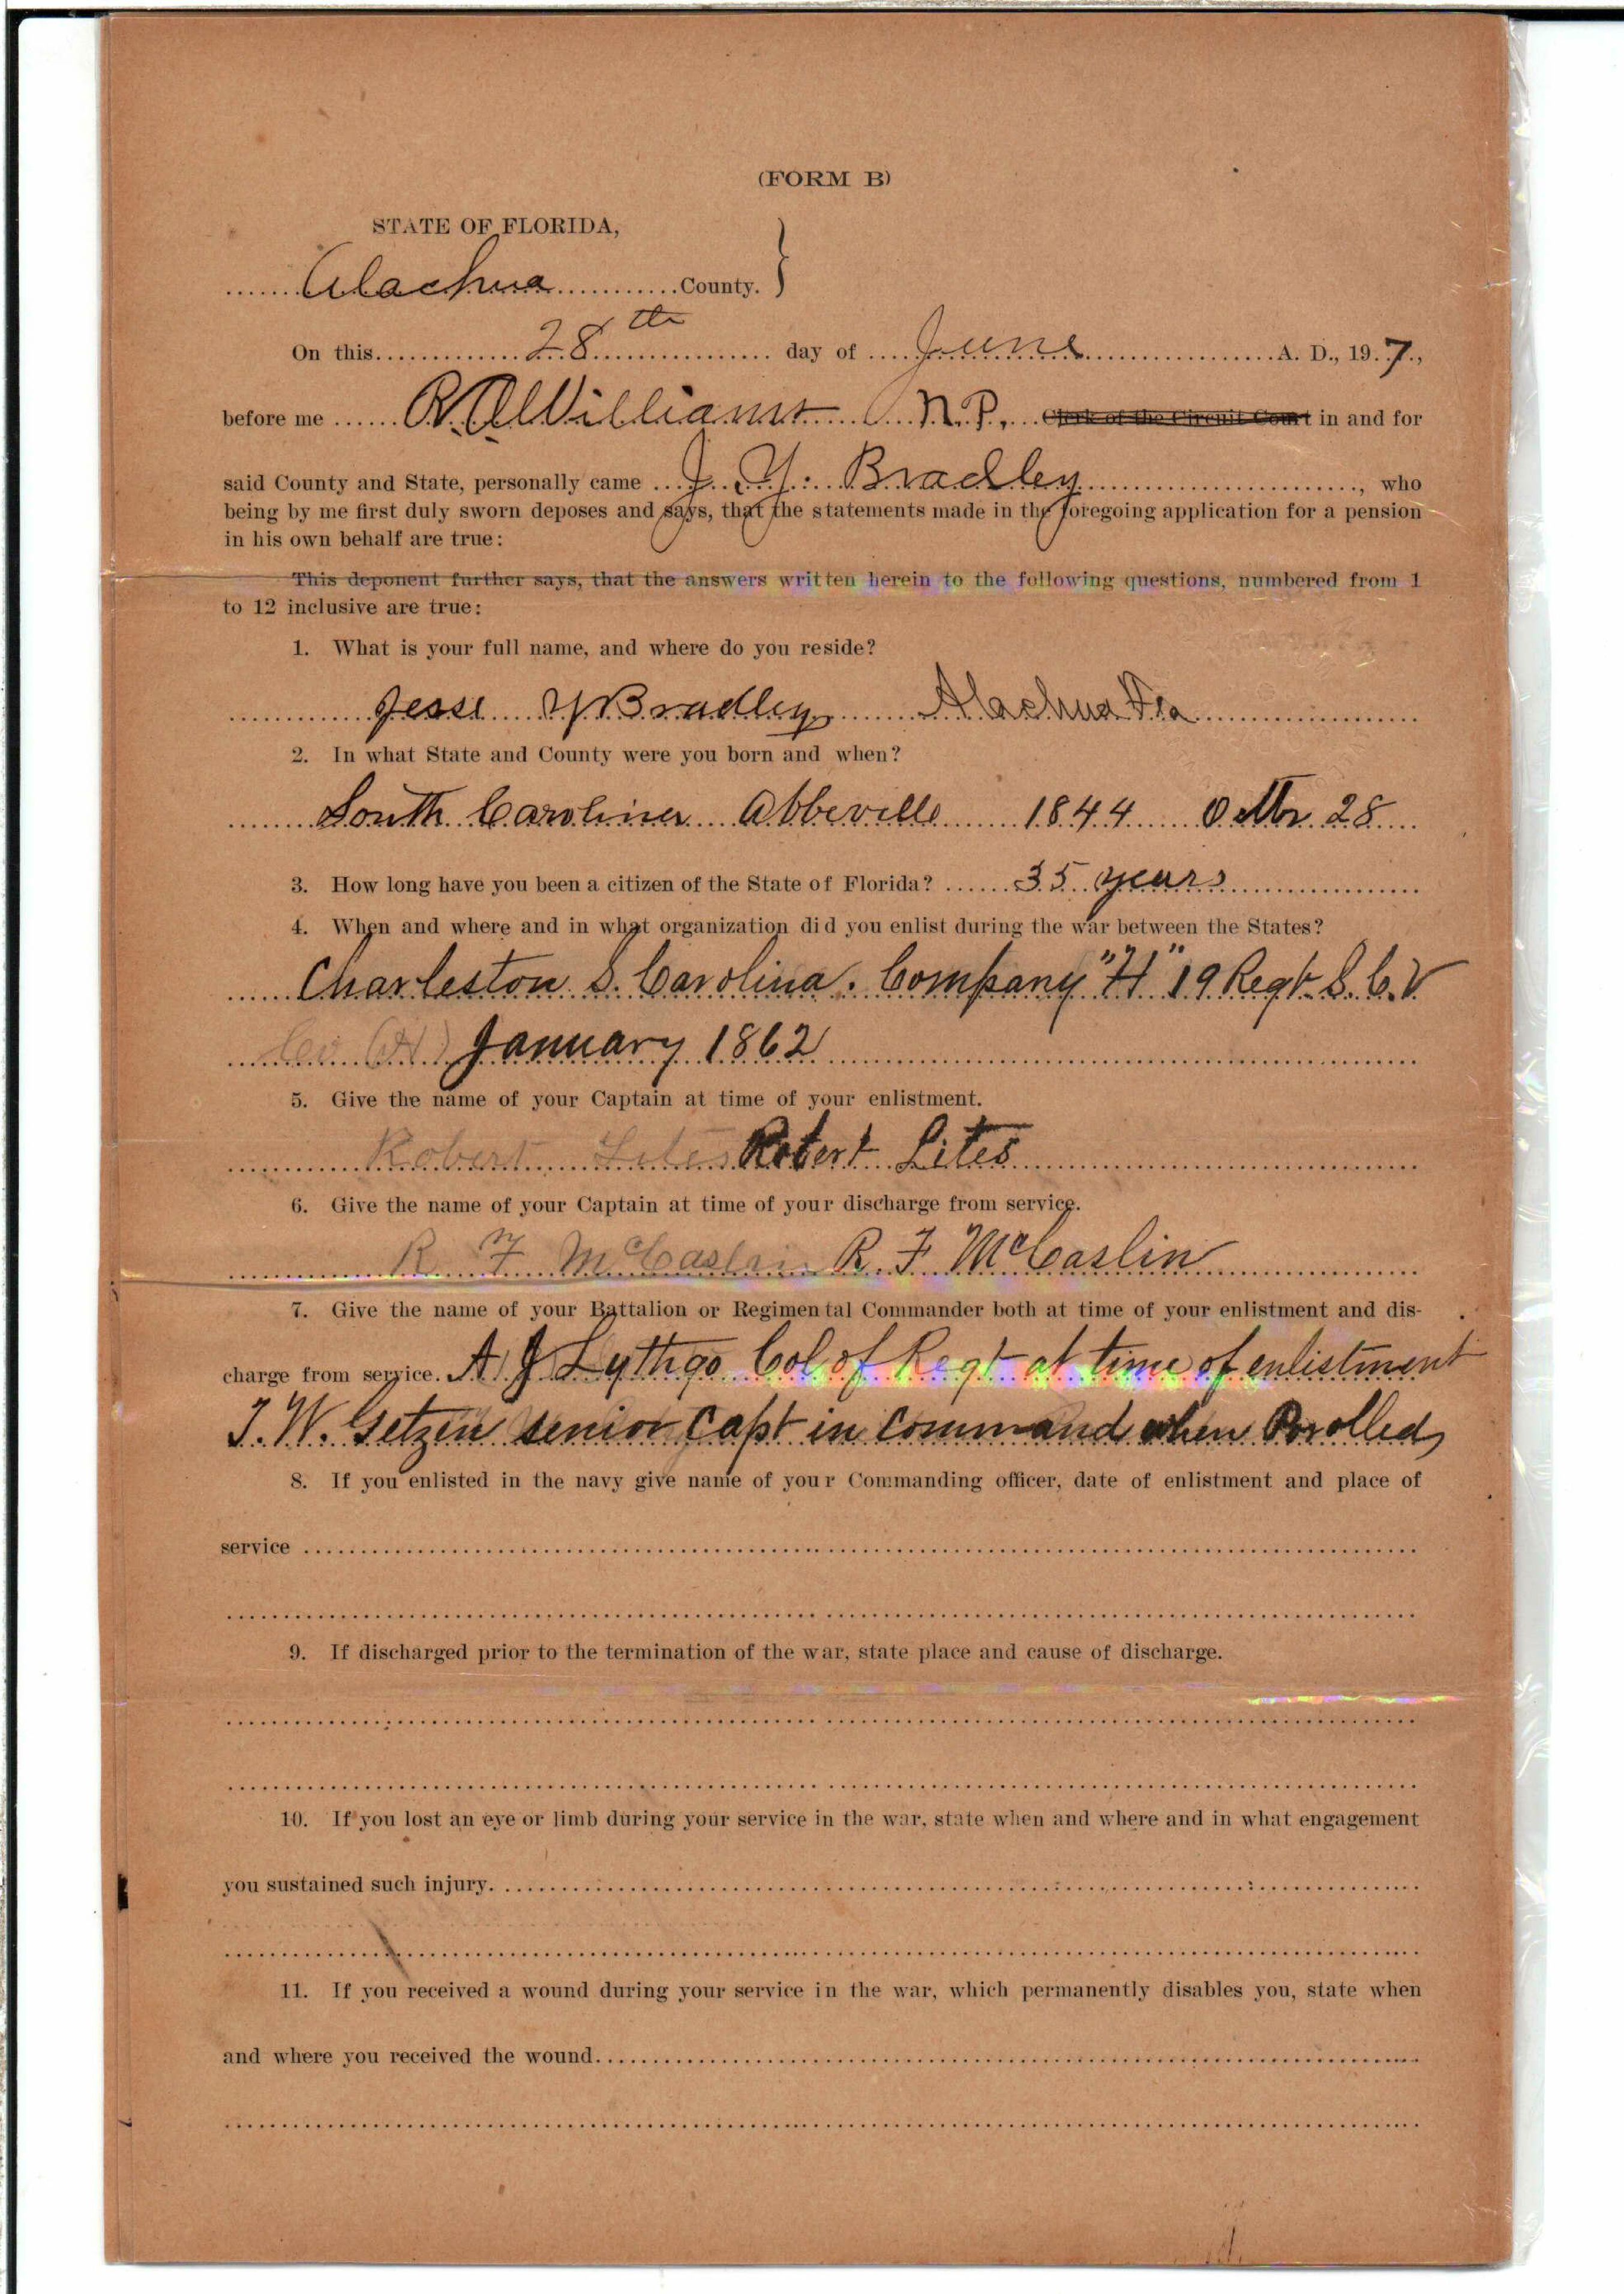 (FORM B)
STATE OF FLORIDA,
Alachua County.
On this 28th day of June A. D., 19 7,
before me R. A. Williams N. P., Clerk of the Circuit Court in and for
said County and State, personally came J. Y. Bradley, who
being by me first duly sworn deposes and says, that the statements made in the foregoing application for a pension
in his own behalf are true:
This deponent further says, that the answers written herein to the following questions, numbered from 1
to 12 inclusive are true:
1. What is your full name, and where do you reside?
Jesse Y Bradley Alachua Fla
2. In what State and County were you born and when?
South Caroliner Abbeville 1844 28
3. How long have you been a citizen of the State of Florida? 35 years
4. When and where and in what organization did you enlist during the war between the States?
Charleston S. Carolina. Company "H" 19 Regt S. C. V
Co (H) January 1862
5. Give the name of your Captain at time of your enlistment.
Robert Lites Robert Lites
6. Give the name of your Captain at time of your discharge from service.
R F McCaslin R. F. McCaslin
7. Give the name of your Battalion or Regimental Commander both at time of your enlistment and dis-
charge from service. A J Lythgo Col of Regt at time of enlistment
T. W. Getzen senior Capt in command when Porolled
8. If you enlisted in the navy give name of your Commanding officer, date of enlistment and place of
service
9. If discharged prior to the termination of the war, state place and cause of discharge.
10. If you lost an eye or limb during your service in the war, state when and where and in what engagement
you sustained such injury.
11. If you received a wound during your service in the war, which permanently disables you, state when
and where you received the wound.